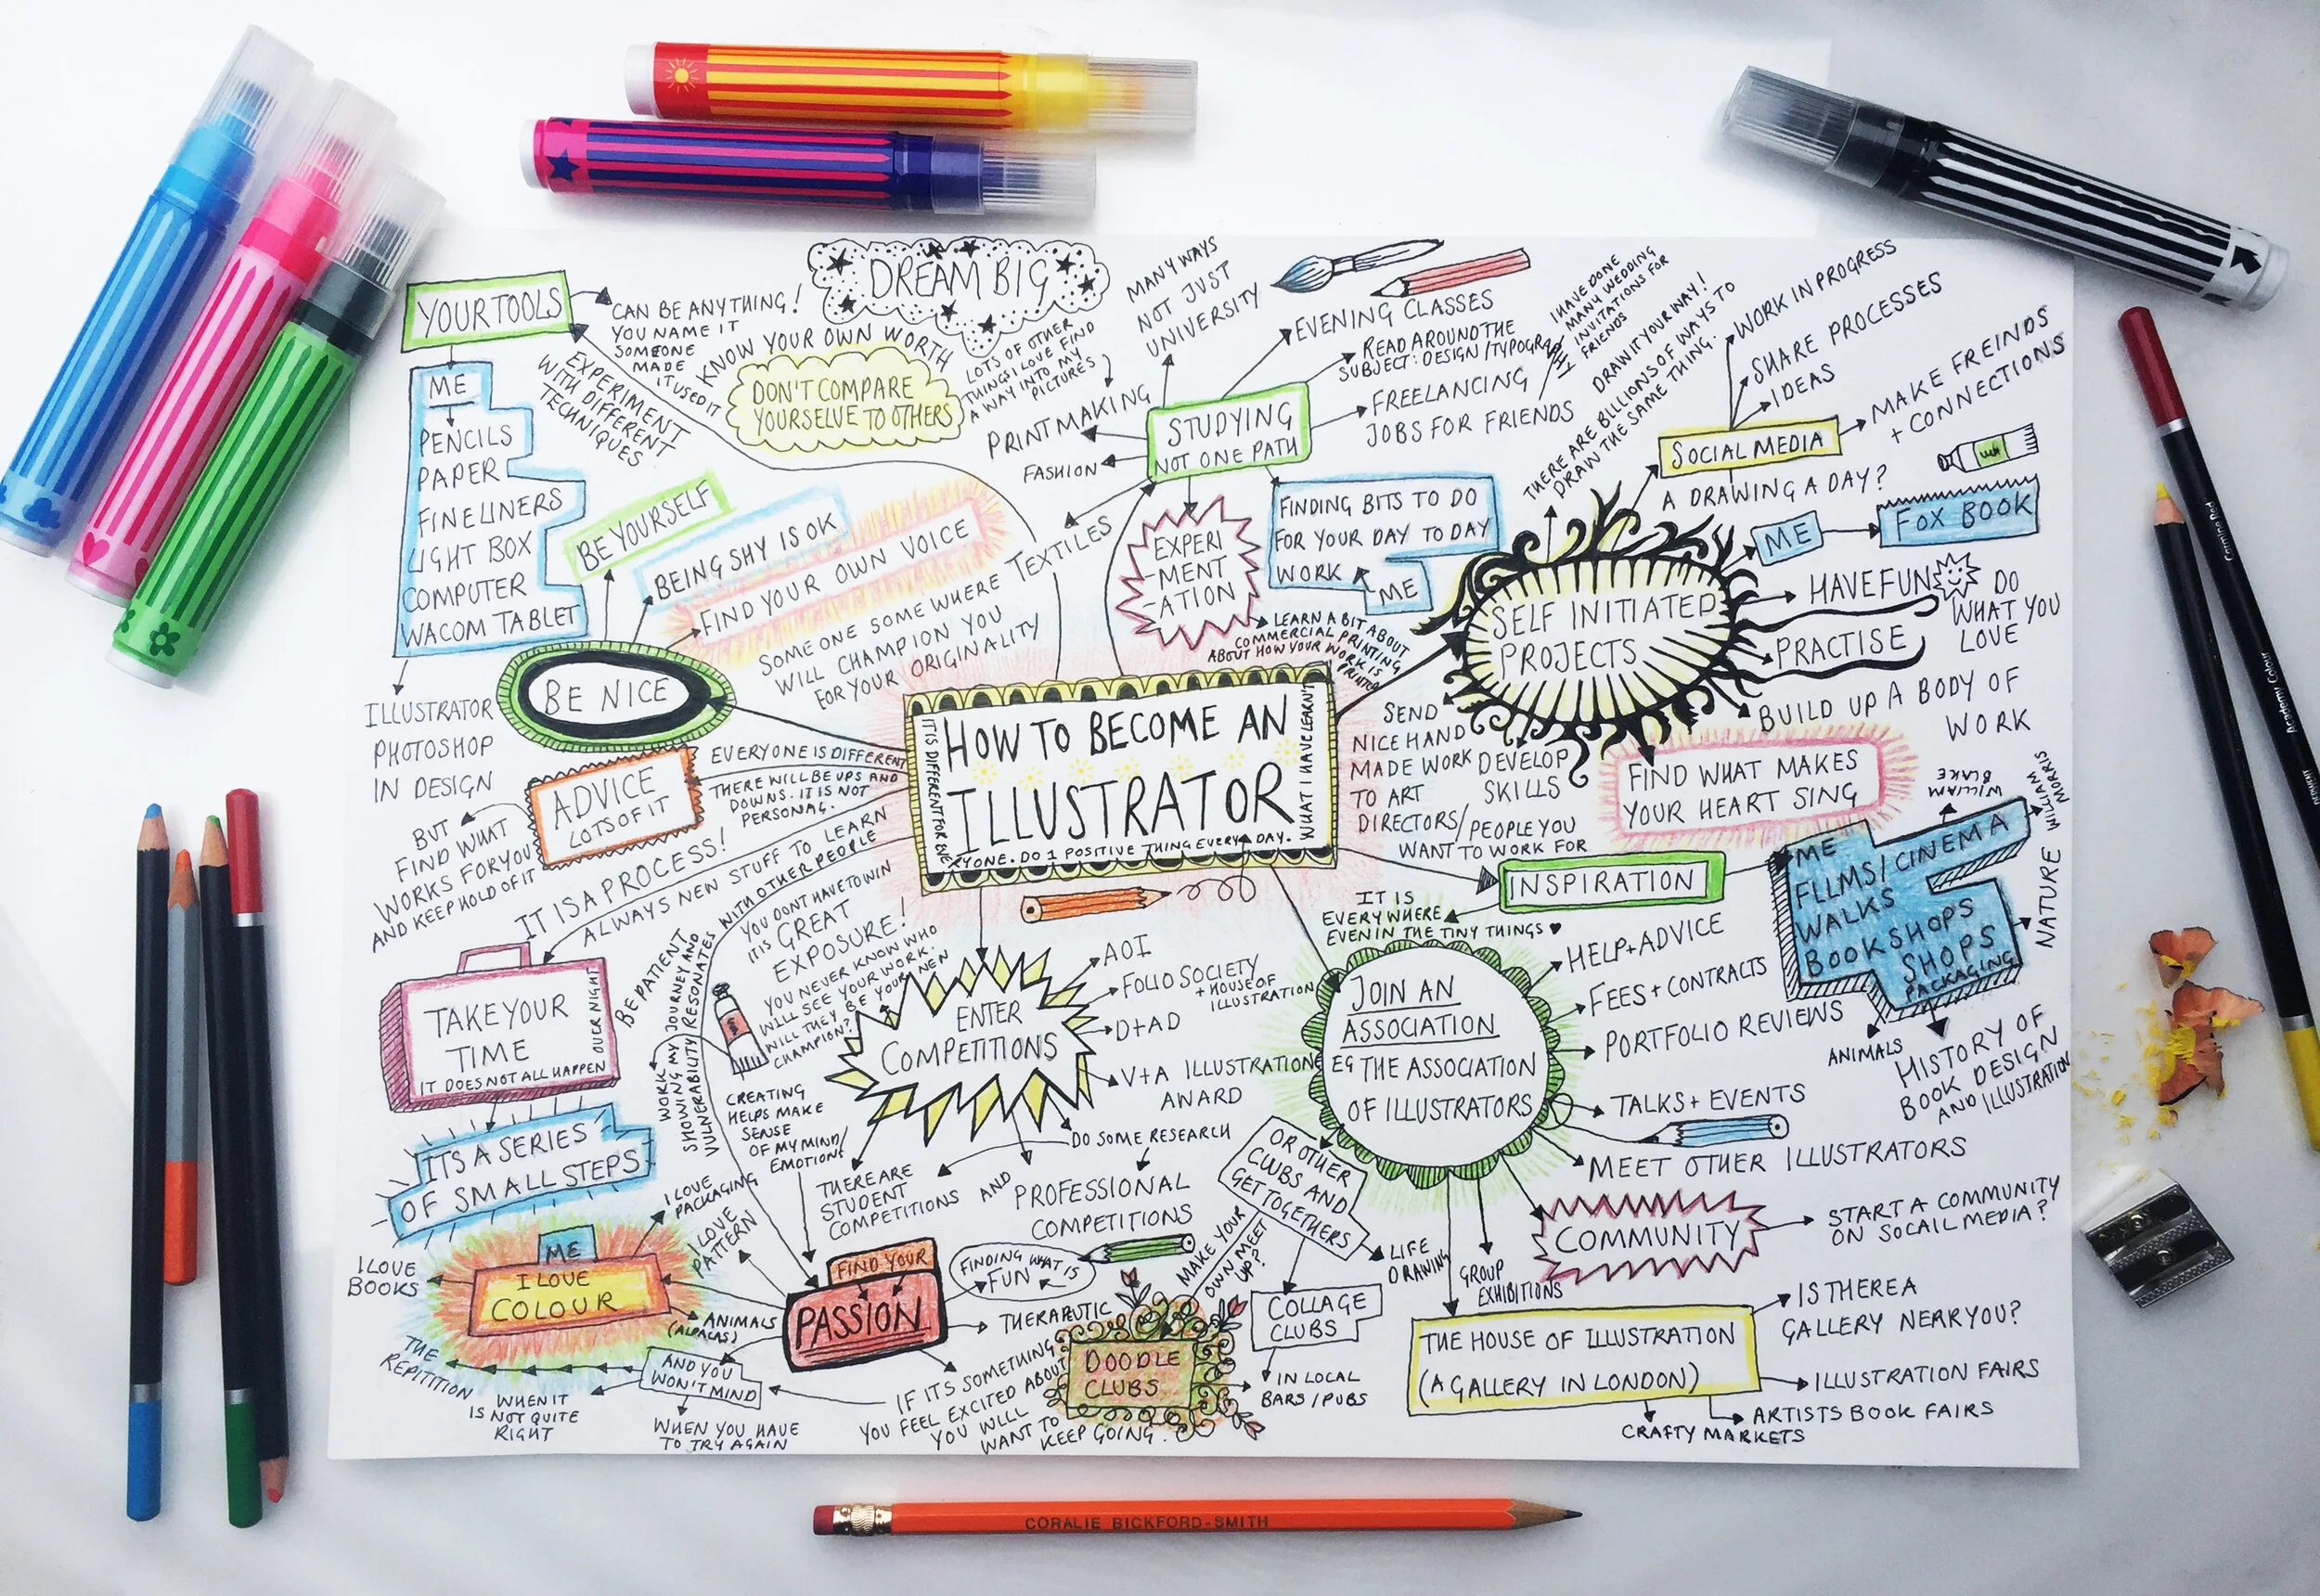 DREAM BIG
YOUR TOOLS
CAN BE ANYTHING!
YOU NAME IT
SOMEONE
MADE
IT USED IT
KNOW YOUR OWN WORTH
DON'T COMPARE
YOURSELVE TO OTHERS
LOTS OF OTHER
THINGS I LOVE FIND
A WAY INTO MY
PICTURES
EXPERIMENT
WITH DIFFERENT
TECHNIQUES
ME
PENCILS
PAPER
FINELINERS
LIGHT BOX
COMPUTER
WACOM TABLET
ILLUSTRATOR
PHOTOSHOP
IN DESIGN
MANY WAYS
NOT JUST
UNIVERSITY
EVENING CLASSES
READ AROUND THE
SUBJECT: DESIGN / TYPOGRAPHY
FREELANCING
JOBS FOR FRIENDS
I HAVE DONE
MANY WEDDING
INVITATIONS FOR
FRIENDS
PRINTMAKING
FASHION
STUDYING
NOT ONE PATH
TEXTILES
EXPERI
-MENT
-ATION
LEARN A BIT ABOUT
COMMERCIAL PRINTING
ABOUT HOW YOUR WORK IS
PRINTED
FINDING BITS TO DO
FOR YOUR DAY TO DAY
WORK
ME
DRAW IT YOUR WAY!
THERE ARE BILLIONS OF WAYS TO
DRAW THE SAME THING.
WORK IN PROGRESS
SHARE PROCESSES
IDEAS
MAKE FREINDS
+ CONNECTIONS
SOCIAL MEDIA
A DRAWING A DAY?
ME
FOX BOOK
SELF INITIATED
PROJECTS
HAVE FUN
DO
WHAT YOU
LOVE
PRACTISE
BUILD UP A BODY OF
WORK
FIND WHAT MAKES
YOUR HEART SING
DEVELOP
SKILLS
SEND
NICE HAND
MADE WORK
TO ART
DIRECTORS/
PEOPLE YOU
WANT TO WORK FOR
BE YOURSELF
BEING SHY IS OK
FIND YOUR OWN VOICE
SOME ONE SOME WHERE
WILL CHAMPION YOU
FOR YOUR ORIGINALITY
BE NICE
HOW TO BECOME AN
ILLUSTRATOR
IT IS DIFFERENT FOR EVE
RYONE. DO 1 POSITIVE THING EVERY DAY.
WHAT I HAVE LEARNT
ADVICE
LOTS OF IT
EVERYONE IS DIFFERENT
THERE WILL BE UPS AND
DOWNS. IT IS NOT
PERSONAL.
BUT
FIND WHAT
WORKS FOR YOU
AND KEEP HOLD OF IT
IT IS A PROCESS!
ALWAYS NEW STUFF TO LEARN
TAKE YOUR
TIME
IT DOES NOT ALL HAPPEN
OVER NIGHT
BE PATIENT
ITS A SERIES
OF SMALL STEPS
WORK
SHOWING MY JOURNEY AND
VULNERABILITY RESONATES WITH OTHER PEOPLE
YOU DONT HAVE TO WIN
IT IS GREAT
EXPOSURE!
YOU NEVER KNOW WHO
WILL SEE YOUR WORK.
WILL THEY BE YOUR NEW
CHAMPION?
ENTER
COMPETITIONS
AOI
FOLIO SOCIETY
+ HOUSE OF
ILLUSTRATION
D+AD
V+A ILLUSTRATION
AWARD
DO SOME RESEARCH
THERE ARE
STUDENT
COMPETITIONS
AND
PROFESSIONAL
COMPETITIONS
CREATING
HELPS MAKE
SENSE
OF MY MIND/
EMOTIONS
FIND YOUR
PASSION
FINDING WHAT IS
FUN
THERABUTIC
IF ITS SOMETHING
YOU FEEL EXCITED ABOUT
YOU WILL
WANT TO
KEEP GOING.
AND YOU
WON'T MIND
THE
REPITITION
WHEN IT
IS NOT QUITE
RIGHT
WHEN YOU HAVE
TO TRY AGAIN
ME
I LOVE
COLOUR
I LOVE
BOOKS
I LOVE
PACKAGING
I LOVE
PATTERN
ANIMALS
(ALPACAS)
INSPIRATION
IT IS
EVERYWHERE
EVEN IN THE TINY THINGS ♥
ME
FILMS/CINEMA
WALKS
BOOKSHOPS
SHOPS
PACKAGING
WILLIAM
BLAKE
WILLIAM
MORRIS
NATURE
ANIMALS
HISTORY OF
BOOK DESIGN
AND ILLUSTRATION
JOIN AN
ASSOCIATION
EG THE ASSOCIATION
OF ILLUSTRATORS
HELP+ADVICE
FEES + CONTRACTS
PORTFOLIO REVIEWS
TALKS + EVENTS
MEET OTHER ILLUSTRATORS
COMMUNITY
START A COMMUNITY
ON SOCAIL MEDIA?
GROUP
EXHIBITIONS
THE HOUSE OF ILLUSTRATION
(A GALLERY IN LONDON)
IS THERE A
GALLERY NEAR YOU?
ILLUSTRATION FAIRS
ARTISTS BOOK FAIRS
CRAFTY MARKETS
OR OTHER
CLUBS AND
GET TOGETHERS
LIFE
DRAWING
MAKE YOUR
OWN MEET
UP?
COLLAGE
CLUBS
IN LOCAL
BARS/PUBS
DOODLE
CLUBS
CORALIE BICKFORD-SMITH
Carmine Red
Academy Colour